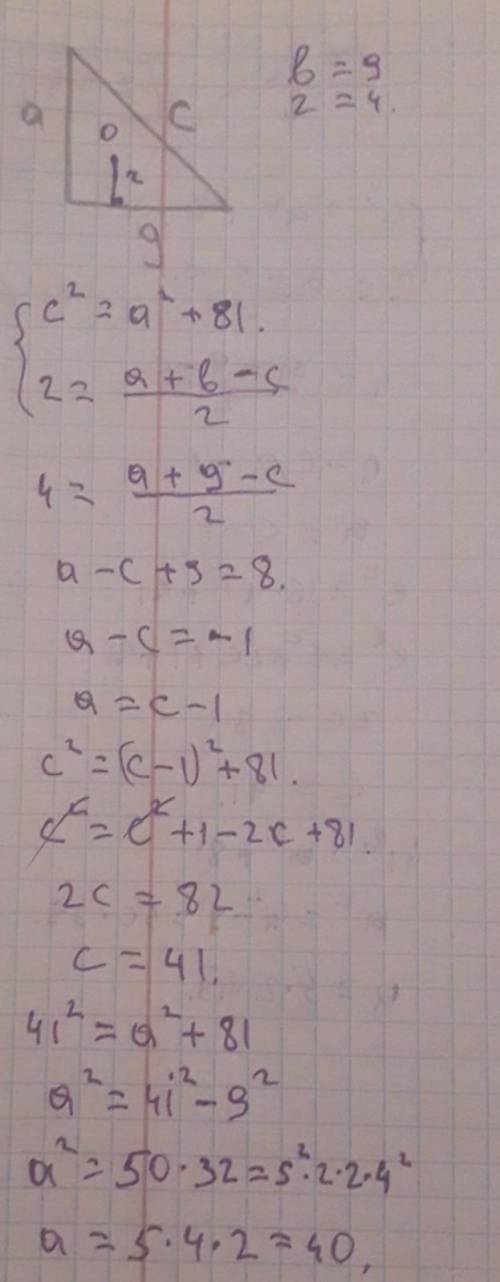 b = 9
r = 4.
a
c
o
r
9
c² = a² + 81.
r = (a + b - c)/2
4 = (a + 9 - c)/2
a - c + 9 = 8.
a - c = -1
a = c - 1
c² = (c - 1)² + 81.
c² = c² + 1 - 2c + 81.
2c = 82
c = 41.
41² = a² + 81
a² = 41² - 9²
a² = 50·32 = 5²·2·2·4²
a = 5·4·2 = 40.